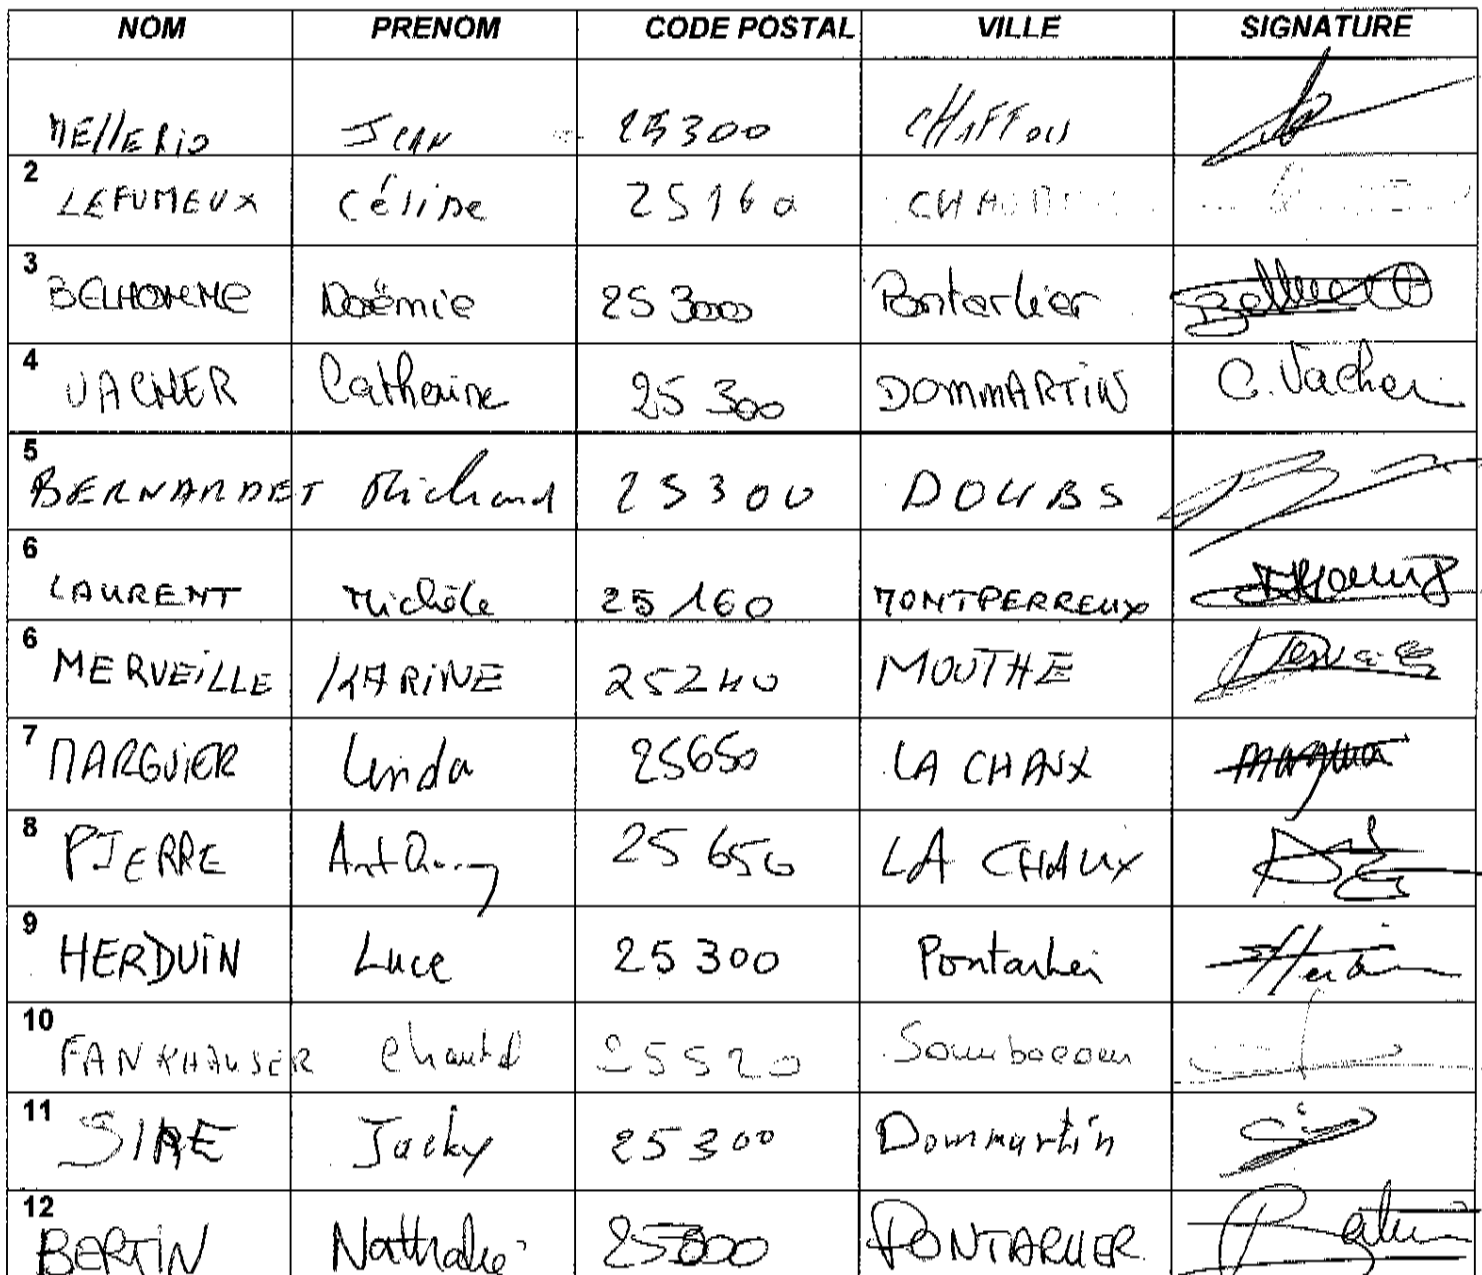 NOM PRENOM CODE POSTAL VILLE SIGNATURE
MELLERIO JEAN 25300 CHAFFOIS
2 LEFUMEUX Céline 25160
3 BELHOMME Noëmie 25 3000 Pontarlier
4 VACHER Catherine 25 300 DOMMARTIN C. Vacher
5 BERNARDET Michaud 25300 DOUBS
6 LAURENT Michèle 25 160 MONTPERREUX
6 MERVEILLE KARINE 25240 MOUTHE
7 MARGUIER Linda 25650 LA CHAUX
8 PIERRE Anthony 25 650 LA CHAUX
9 HERDUIN Luce 25 300 Pontarlier
10 FANKHAUSER Chantal 25520 Sombacour
11 SIRE Jacky 25300 Dommartin
12 BERTIN Nathalie 25300 PONTARLIER